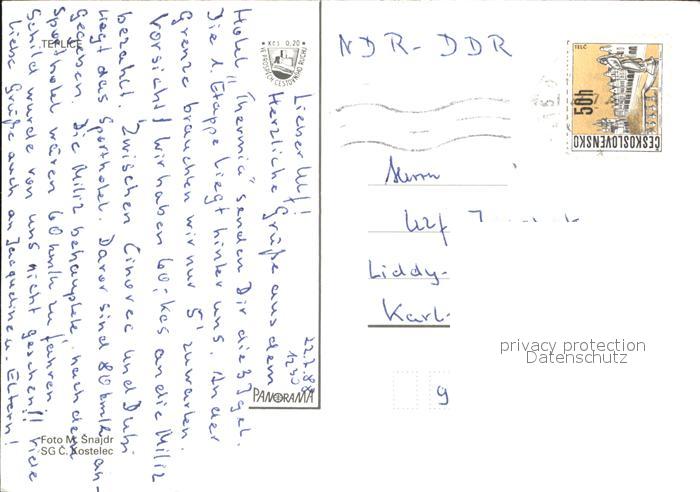 TEPLICE
Kčs 0,20
22.7.88
12°°
Lieber Ulf!
Herzliche Grüße aus dem
Hotel "Thermia" senden Dir die 3 Igel.
Die 1. Etappe liegt hinter uns. An der
Grenze brauchten wir nur 5' zu warten.
Vorsicht! Wir haben 60,- Kcs an die Miliz
bezahlt. Zwischen Cinovec und Dubi
liegt das Sporthotel. Davor sind 80 km/h an-
gegeben. Die Miliz behauptete nach dem
Sporthotel wären 60 km/h zu fahren
Schild wurde von uns nicht gesehen!! Viele
liebe Grüße auch an Jacqueline u. Eltern!
Foto M. Šnajdr
SG Č. Kostelec
PANORAMA
NDR - DDR
TELČ
50h
ČESKOSLOVENSKO
Herrn
Ulf
Liddy-
Karl-
9
privacy protection
Datenschutz